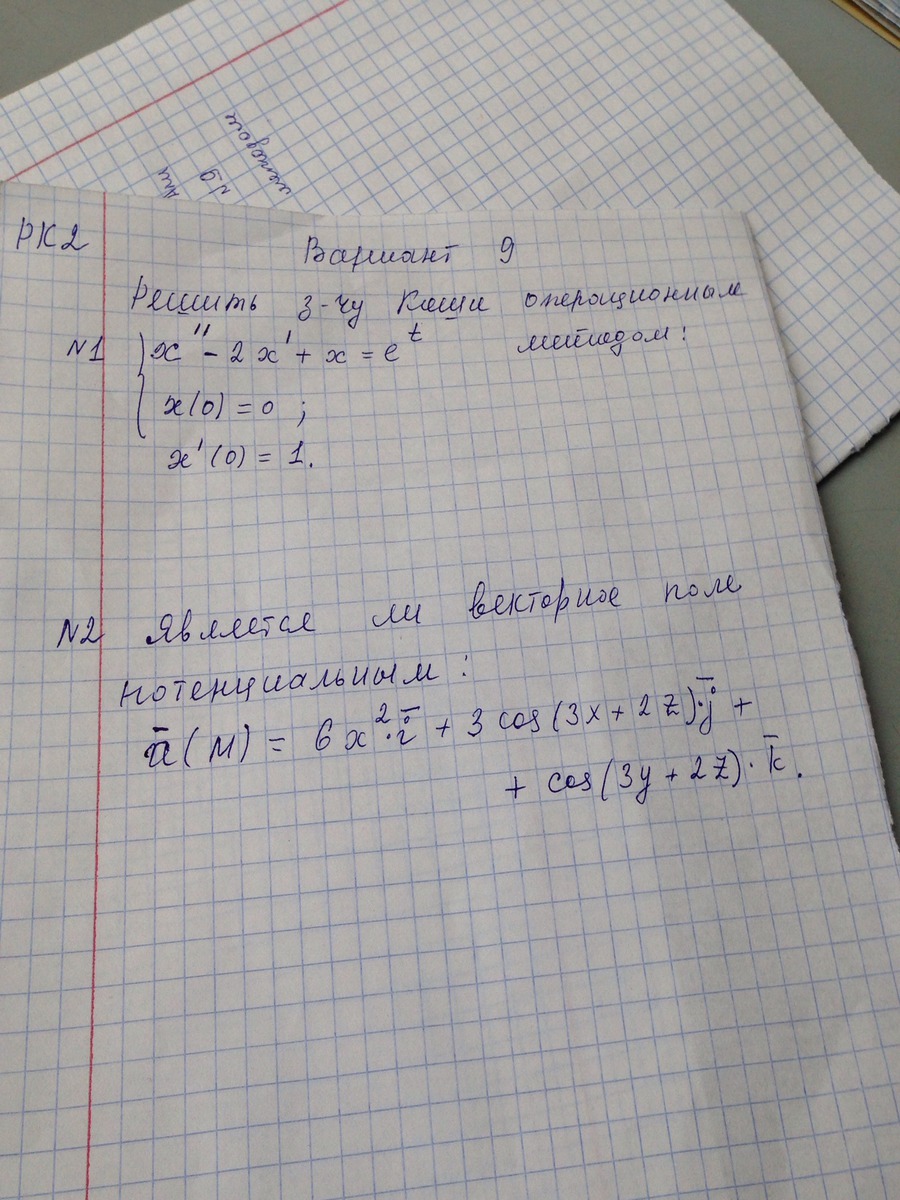 методом
№9
РК2
Вариант 9
Решить з-чу Коши операционным
методом:
№1 x'' - 2x' + x = e^t
x(0) = 0 ;
x'(0) = 1.
№2 Является ли векторное поле
потенциальным:
ā(M) = 6x²·ī + 3 cos(3x + 2z)·j̄ +
+ cos(3y + 2z)·k̄.